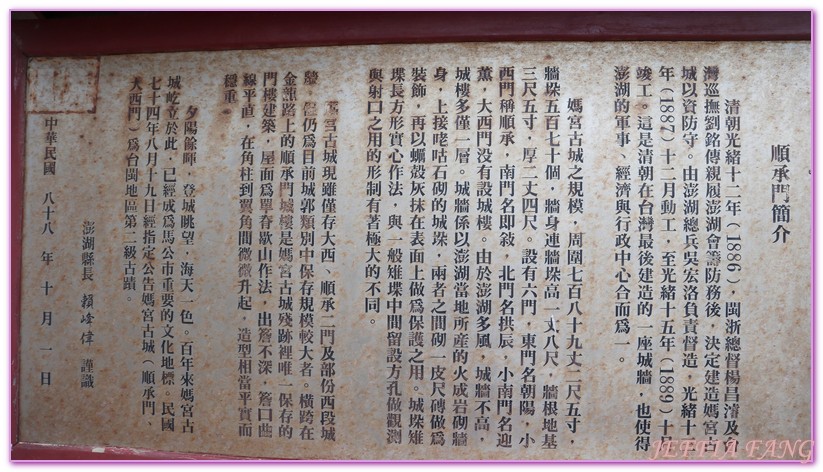 順承門簡介
清朝光緒十二年(1886)，閩浙總督楊昌濬及
灣巡撫劉銘傳親履澎湖會籌防務後，決定建造媽宮古
城以資防守。由澎湖總兵吳宏洛負責督造，光緒十
年(1887)十二月動工，至光緒十五年(1889)十月
竣工。這是清朝在台灣最後建造的一座城牆，也使得
澎湖的軍事、經濟與行政中心合而為一。
媽宮古城之規模，周圍七百八十九丈二尺五寸，
牆垛五百七十個，牆身連牆垛高一丈八尺，牆根地基
三尺五寸，厚二丈四尺。設有六門，東門名朝陽，小
西門稱順承，南門名即敍，北門名拱辰，小南門名迎
薰，大西門没有設城樓。由於澎湖多風，城牆不高，
城樓多僅一層。城牆係以澎湖當地所產的火成岩砌牆
身，上接咾咕石砌的城垛，兩者之間砌一皮尺磚做為
裝飾，再以蠣殼灰抹在表面上做為保護之用。城垛雉
堞長方形實心作法，與一般雉堞中間留設方孔做觀測
與射口之用的形制有著極大的不同。
宮古城現雖僅存大西、順承二門及部份西段城
仍為目前城郭類別中保存規模較大者。橫跨在
金龍路上的順承門城樓是媽宮古城殘跡裡唯一保存的
門樓建築，屋面為單脊歇山作法，出簷不深，簷口曲
線平直，在角柱到翼角間微微升起，造型相當平實而
穩重。
夕陽餘暉，登城眺望，海天一色。百年來媽宮古
城屹立於此，已經成為馬公市重要的文化地標。民國
七十四年八月十九日經指定公告媽宮古城(順承門、
大西門)為台閩地區第二級古蹟。
澎湖縣長 賴峰偉 謹識
中華民國 八十八 年 十 月 一 日
JEFFIA FANG